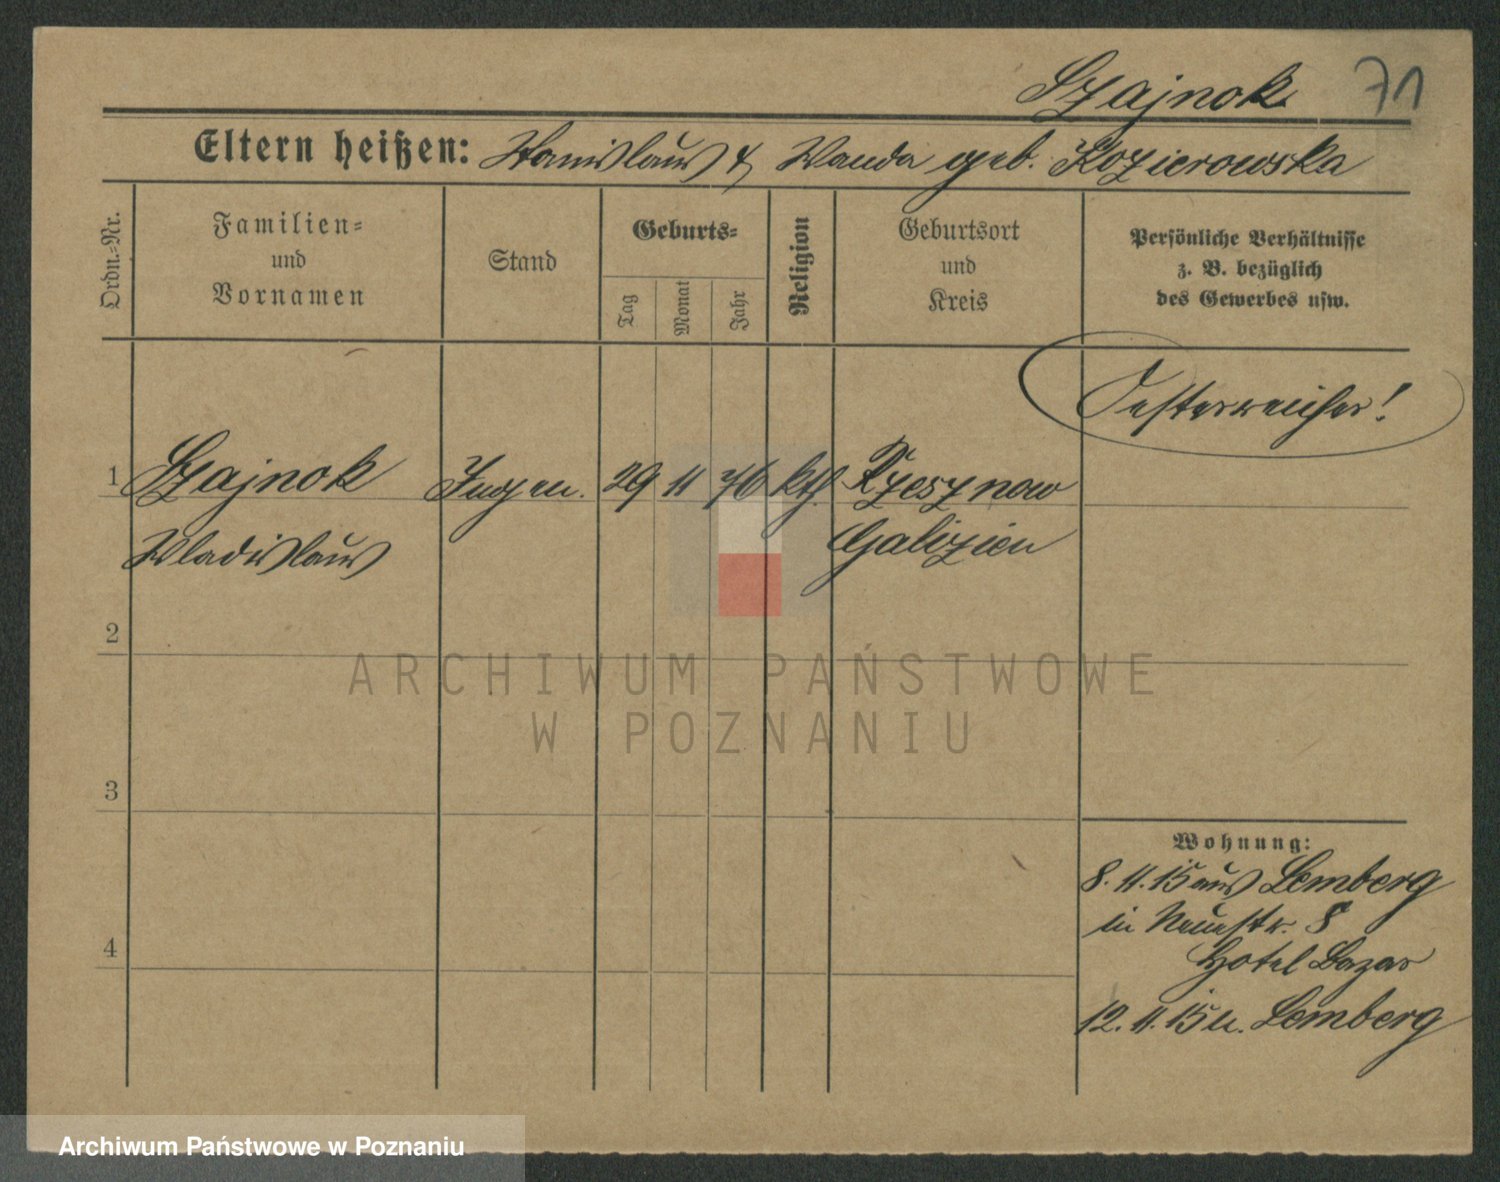 Szajnok 71
Eltern heißen: Stanislaus & Wanda geb. Kozierowska
Ordn.-Nr.
Familien-
und
Vornamen
Stand
Geburts-
Tag
Monat
Jahr
Religion
Geburtsort
und
Kreis
Persönliche Verhältnisse
z. B. bezüglich
des Gewerbes usw.
Oesterreicher!
1 Szajnok Ingen. 29 11 76 kth. Rzesznow
Wladislaus Galizien
2
3
4
Wohnung:
8. 11. 15 aus Lemberg
in Neuestr. 8
Hotel Bazar
12. 11. 15 n. Lemberg
ARCHIWUM PAŃSTWOWE
W POZNANIU
Archiwum Państwowe w Poznaniu